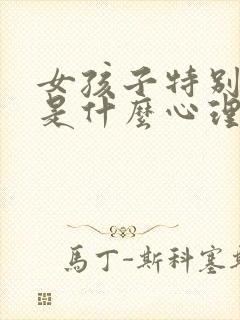 女孩子特别
是什麼心理
馬丁-斯科塞